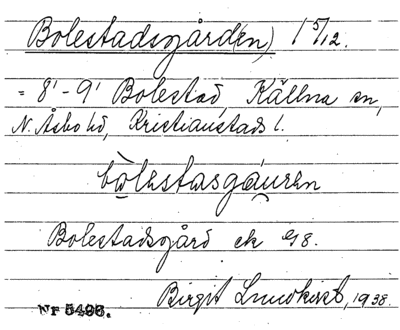 Bolestadsgård(en) 1 5/12.
= 8¹ - 9¹ Bolestad, Källna sn,
N. Åsbo hd, Kristianstads l.
bòlestasgáuren
Bolestadsgård ek 98.
Birgit Lundkvist, 1938.
Nr 5498.